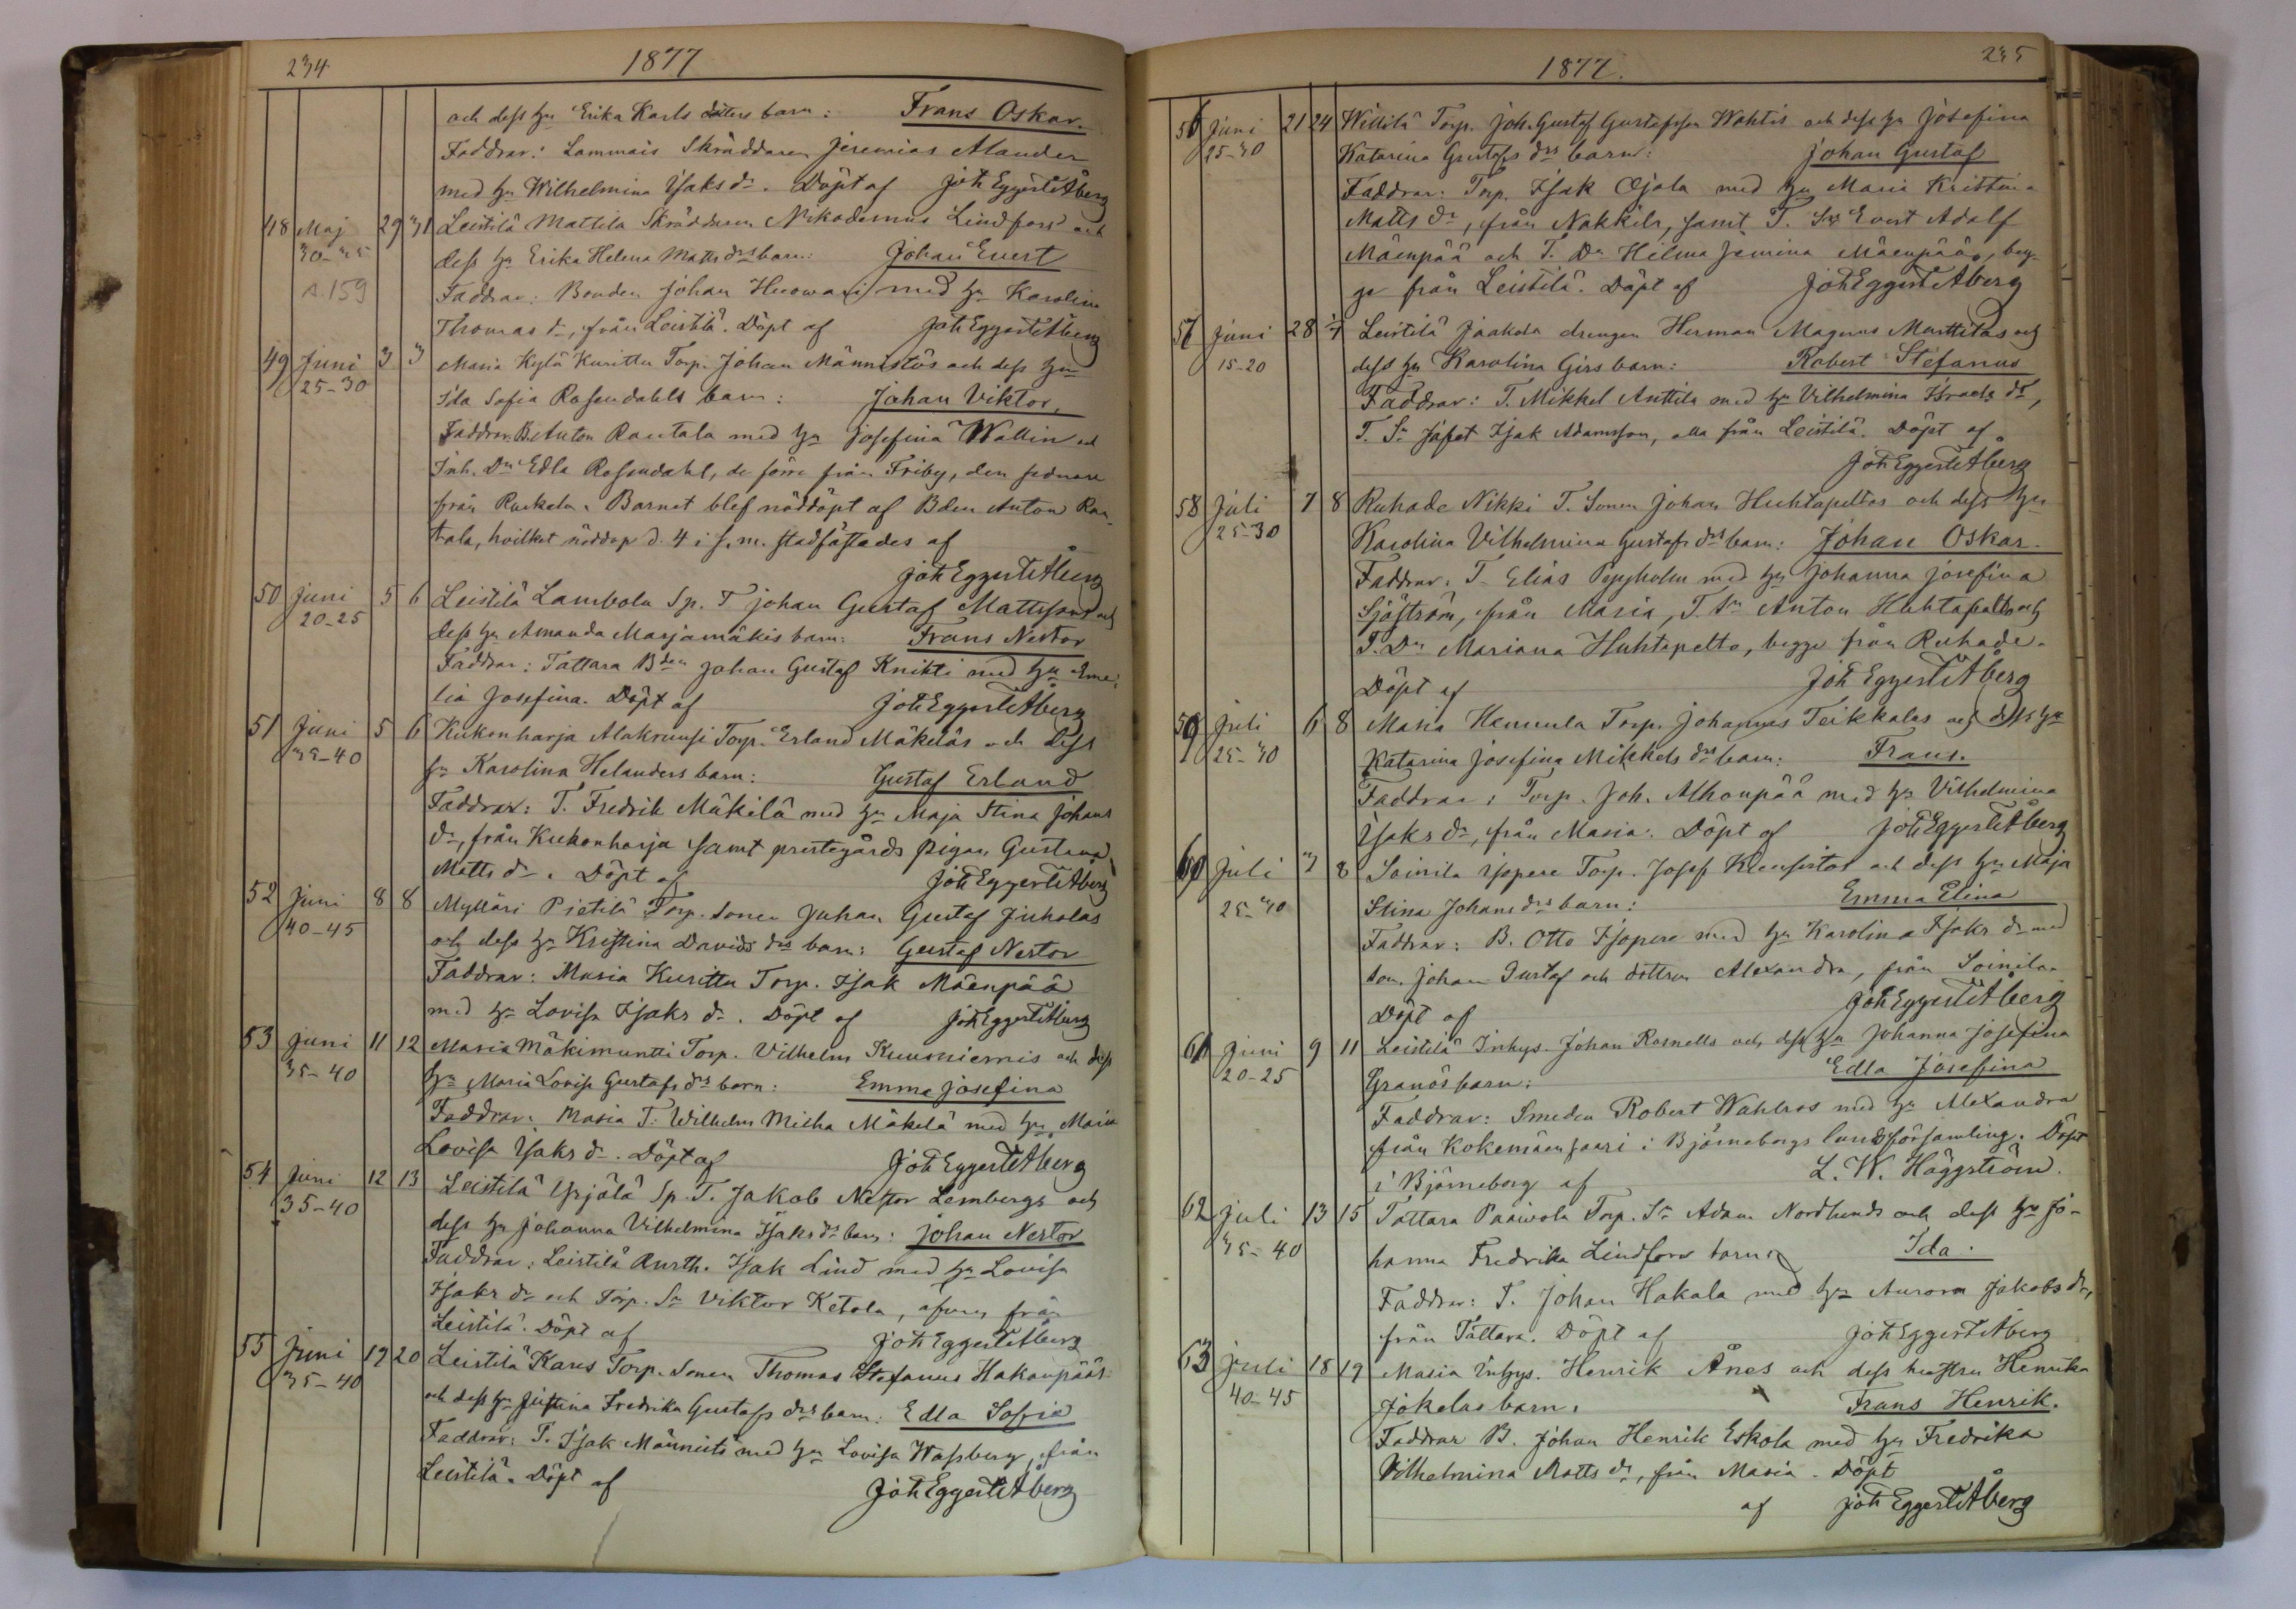 234
1877
och dess hu Erika Karls dotters barn: Frans Oskar.
Faddrar: Lammais Skräddaren Jeremias Alander
med hu Wilhelmina Isaks dr. Döpt af Joh Eggert Åberg
48 Maj 29 31 Leistilä Mattila Skräddaren Nikodemus Lindfors och
30-35 dess hu Erika Helena Matts drs barn: Johan Evert
s. 159 Faddrar: Bonden Johan Huowari med hu Karolina
Thomas dr, från Leistilä. Döpt af Joh Eggert Åberg
49 Juni 3 3 Masia Kylä Kurittu Torp. Johan Männistös och dess hu
25-30 Ida Sofia Rosendahls barn: Johan Viktor.
Faddrar B. Anton Rautala med hu Josefina Wallin
Inh. Dr Edla Rosendahl, de förre från Friby, den sednare
från Ruskela. Barnet blef nöddöpt af Bden Anton Rau-
tala, hvilket nöddop d. 4 i s. m. stadfästades af
Joh Eggert Åberg
50 Juni 5 6 Leistilä Lambola Sp. T Johan Gustaf Mattssons och
20-25 dess hu Amanda Marjamäkis barn: Frans Nestor
Faddrar: Tattara Bden Johan Gustaf Knihti med hu Eme-
lia Josefina. Döpt af Joh Eggert Åberg
51 Juni 5 6 Kukonharja Alakruusi Torp. Erland Mäkeläs och dess
35-40 hu Karolina Helanders barn: Gustaf Erland
Faddrar: T. Fredrik Mäkilä med hu Maja Stina Johans
dr, från Kukonharja samt prestegårds pigan Gustava
Matts dr. Döpt af Joh Eggert Åberg
52 Juni 8 8 Mylläri Pietilä Torp. sonen Juhan Gustaf Juholas
40-45 och dess hu Kristina Davids drs barn: Gustaf Nestor
Faddrar: Masia Kurittu Torp. Isak Mäenpää
med hu Lovisa Isaks dr. Döpt af Joh Eggert Åberg
53 Juni 11 12 Masia Mäkimuntti Torp. Vilhelm Kuusniemis och dess
35-40 hu Maria Lovisa Gustafs drs barn: Emma Josefina
Faddrar: Masia T. Wilhelm Mäkelä med hu Maria
Lovisa Isaks dr. Döpt af Joh Eggert Åberg
54 Juni 12 13 Leistilä Yrjölä Sp. T. Jakob Nestor Lembergs och
35-40 dess hu Johanna Vilhelmina Isaks drs barn: Johan Nestor
Faddrar: Leistilä Isak Lind med hu Lovisa
Isaks dr och Torp. Sn Viktor Ketola, från
Leistilä. Döpt af Joh Eggert Åberg
55 Juni 19 20 Leistilä Karus Torp. Sonen Thomas Stefanus Hakanpääs
35-40 och dess hu Justina Fredrika Gustafs drs barn: Edla Sofia
Faddrar: T. Isak Männistö med hu Lovisa Wassberg, från
Leistilä. Döpt af Joh Eggert Åberg
1877.
235
56 Juni 21 24 Willilä Torp. Joh. Gustaf Gustafsson Wahtis och dess hu Josefina
25-30 Katarina Gustafs drs barn: Johan Gustaf
Faddrar: Torp. Isak Ojala med hu Maria Kristina
Matts dr, från Nakkila, samt T. Sn Evert Adolf
Mäenpää och T. Dr Hilma Jemina Mäenpää, beg-
ge från Leistilä. Döpt af Joh Eggert Åberg
57 Juni 28 1/7 Leistilä Jaakola drengen Herman Magnus Marttilas och
15-20 dess hu Karolina Girs barn: Robert Stefanus
Faddrar: T. Mikkel Anttila med hu Vilhelmina Israels dr,
T. Sn Jafet Isak Adamsson, alla från Leistilä. Döpt af
Joh Eggert Åberg
58 Juli 7 8 Ruhade Nikki T. Sonen Johan Huhtapeltos och dess hu
25-30 Karolina Vilhelmina Gustafs drs barn: Johan Oskar.
Faddrar: T. Elias Peyholm med hu Johanna Josefina
Sjöström, från Masia, T. Sn Anton Huhtapelto och
T. Dr Mariana Huhtapelto, begge från Ruhade.
Döpt af Joh Eggert Åberg
59 Juli 6 8 Masia Hennula Torp. Johannes Teikkalas och dess hu
25-30 Katarina Josefina Mikkels drs barn: Frans.
Faddrar: Torp. Joh. Alhonpää med hu Vilhelmina
Isaks dr, från Masia. Döpt af Joh Eggert Åberg
60 Juli 7 8 Soinila Isopere Torp. Josef och dess hu Maja
25-30 Stina Johans drs barn: Emma Elina
Faddrar: B. Otto Isopere med hu Karolina Isaks dr med
son Johan Gustaf och dottren Alexandra, från Soinila.
Döpt af Joh Eggert Åberg
61 Juni 9 11 Leistilä Inhys. Johan Rosnells och dess hu Johanna Josefina
20-25 Granös barn: Edla Josefina
Faddrar: Smeden Robert Wahlros med hu Alexandra
från Kokemäensaari i Björneborgs landsförsamling. Döpt
i Björneborg af L. W. Häggström.
62 Juli 13 15 Tattara Paawola Torp. Sn Adam Nordlunds och dess hu Jo-
35-40 hanna Fredrika Lindfors barn: Ida.
Faddrar: T. Johan Hakala med hu Aurora Jakobs dr,
från Tattara. Döpt af Joh Eggert Åberg
63 Juli 18 19 Masia Inhys. Henrik Ånes och dess hustru Henrika
40-45 Jokelas barn: Frans Henrik.
Faddrar B. Johan Henrik Eskola med hu Fredrika
Vilhelmina Matts dr, från Masia. Döpt
af Joh Eggert Åberg